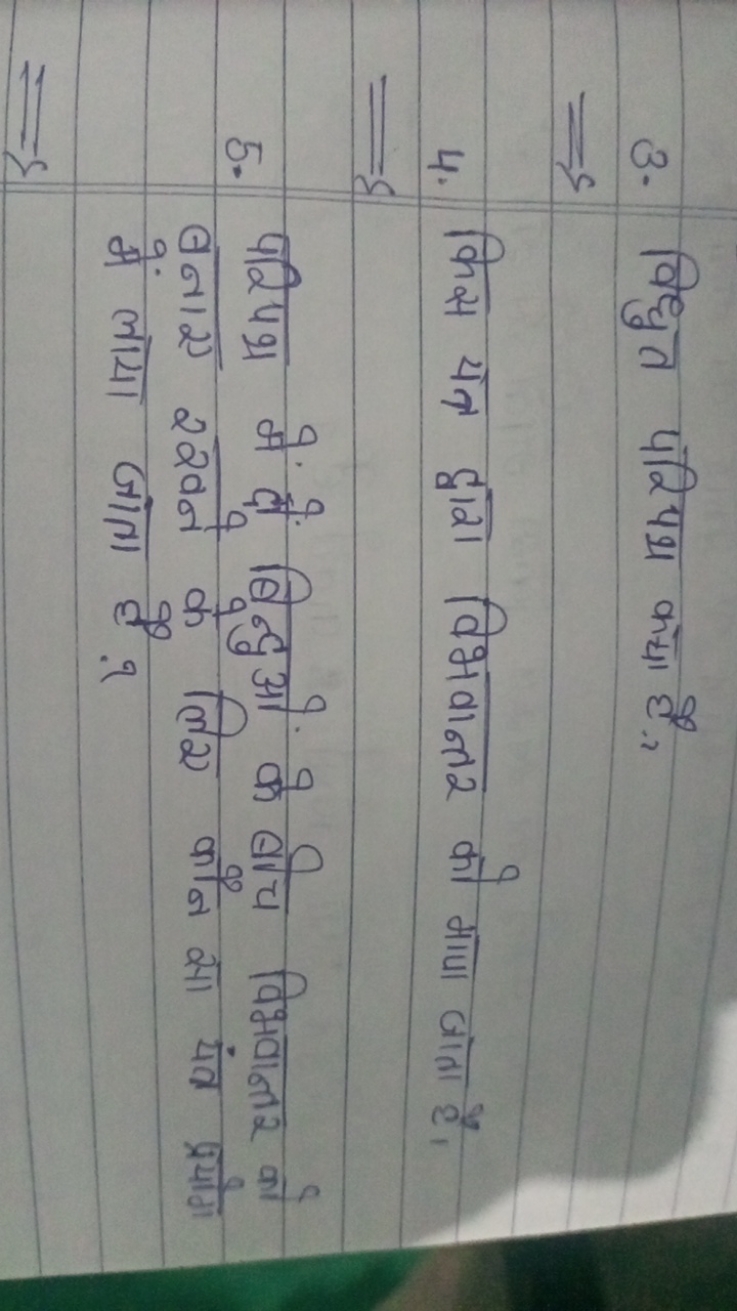 3. विद्युत परिपथ क्या है?
=>
4. किस यंत्र द्वारा विभवान्तर को मापा जाता है।
=>
5. परिपथ में दो बिन्दुओं के बीच विभवान्तर को
बनाए रखने के लिए कौन सा यंत्र प्रयोग
में लाया जाता है?
=>